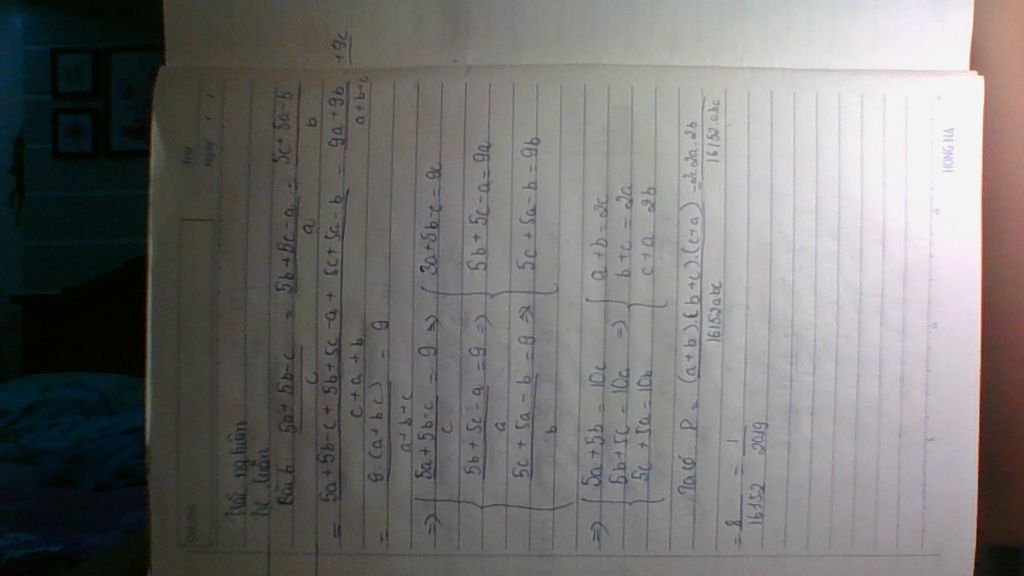 Thứ
Ngày / /
Tự luận
Bài 6: 5a+5b-c / c = 5b+5c-a / a = 5c+5a-b / b
= 5a+5b-c+5b+5c-a+5c+5a-b / c+a+b = 9a+9b+9c / a+b+c
= 9(a+b+c) / a+b+c = 9
=> { 5a+5b-c / c = 9 => { 5a+5b-c=9c
5b+5c-a / a = 9 => 5b+5c-a=9a
5c+5a-b / b = 9 => 5c+5a-b=9b
=> { 5a+5b=10c { a+b=2c
5b+5c=10c => b+c=2a
5c+5a=10b c+a 2b
Ta có P = (a+b).(b+c).(c+a) / 16152abc = 2c.2a.2b / 16152.abc
= 8 / 16152 = 1 / 2019
HONG HA